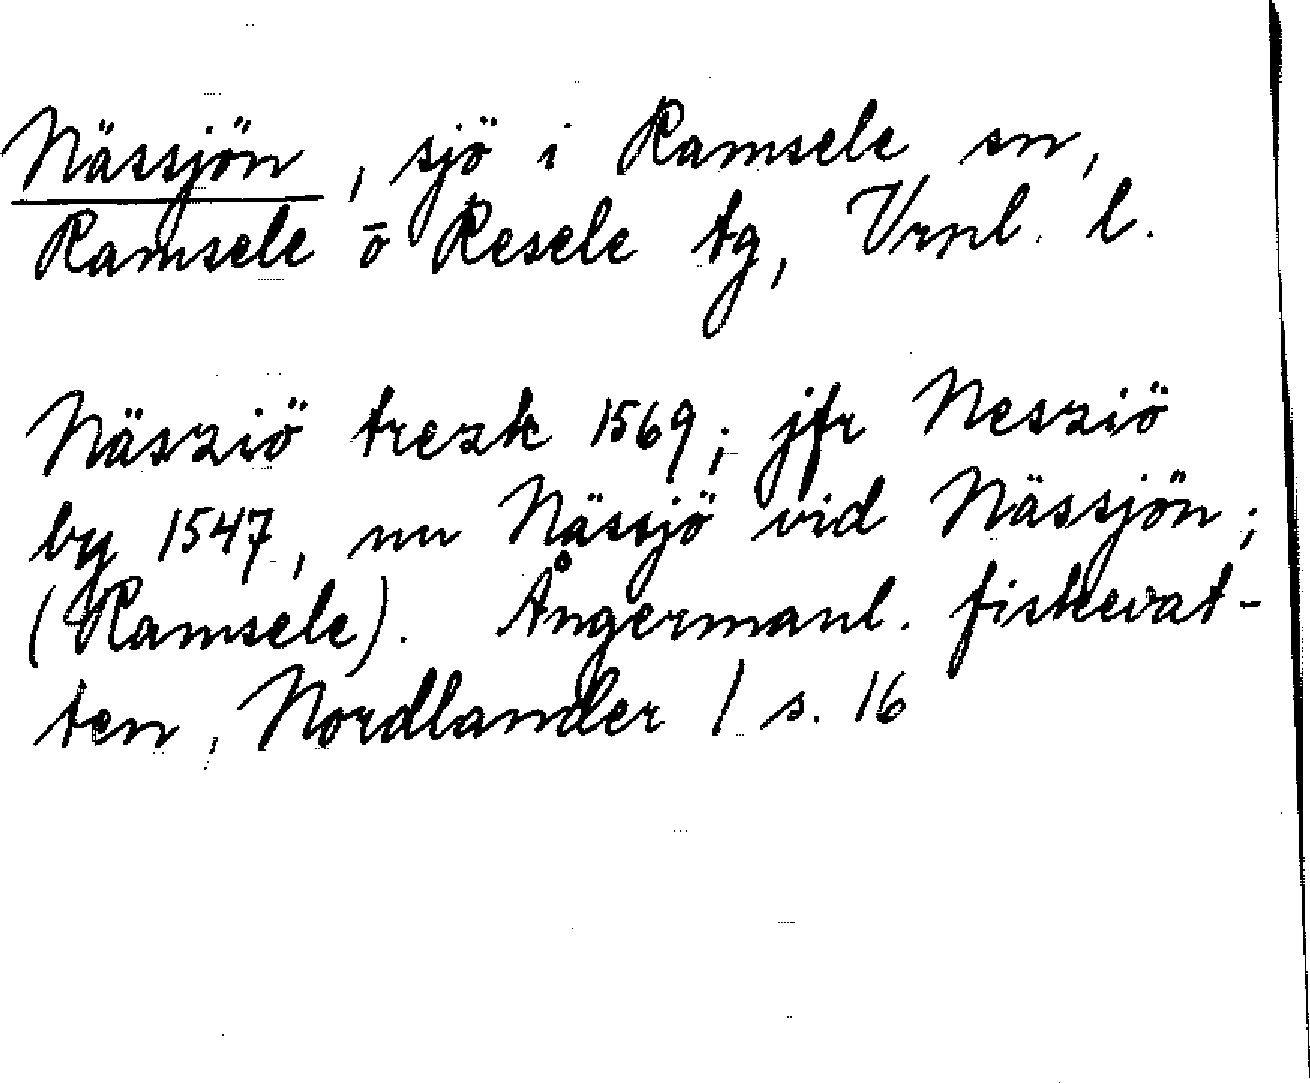 Nässjön, sjö i Ramsele sn,
Ramsele o Resele tg, Vrnl. l.
Näsziö trezk 1569; jfr Nesziö
by 1547, nu Nässjö vid Nässjön;
(Ramsele). Ångermanl. fiskevat-
ten, Nordlander 1 s. 16